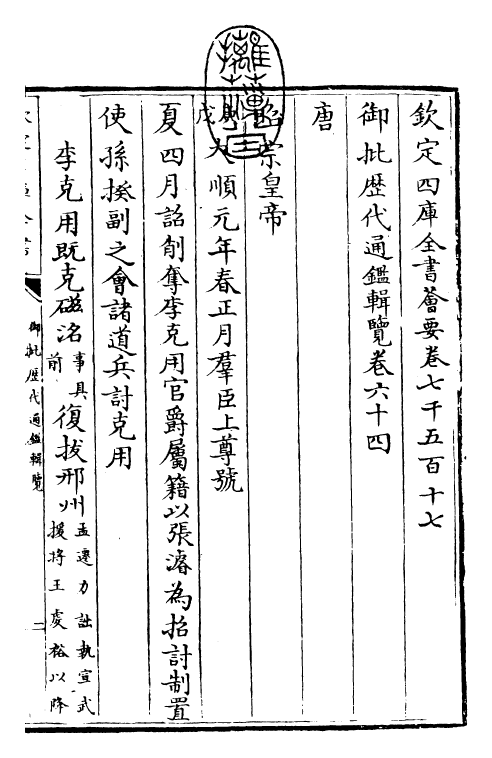 欽定四庫全書薈要卷七千五百十七
御批歷代通鑑輯覽卷六十四
唐
昭宗皇帝
庚戌大順元年春正月羣臣上尊號
夏四月詔削奪李克用官爵屬籍以張濬為招討制置
使孫揆副之會諸道兵討克用
李克用既克磁洺事具前復拔邢州孟遷力詘執宣武援將王䖍裕以降
御批歷代通鑑輯覽
二